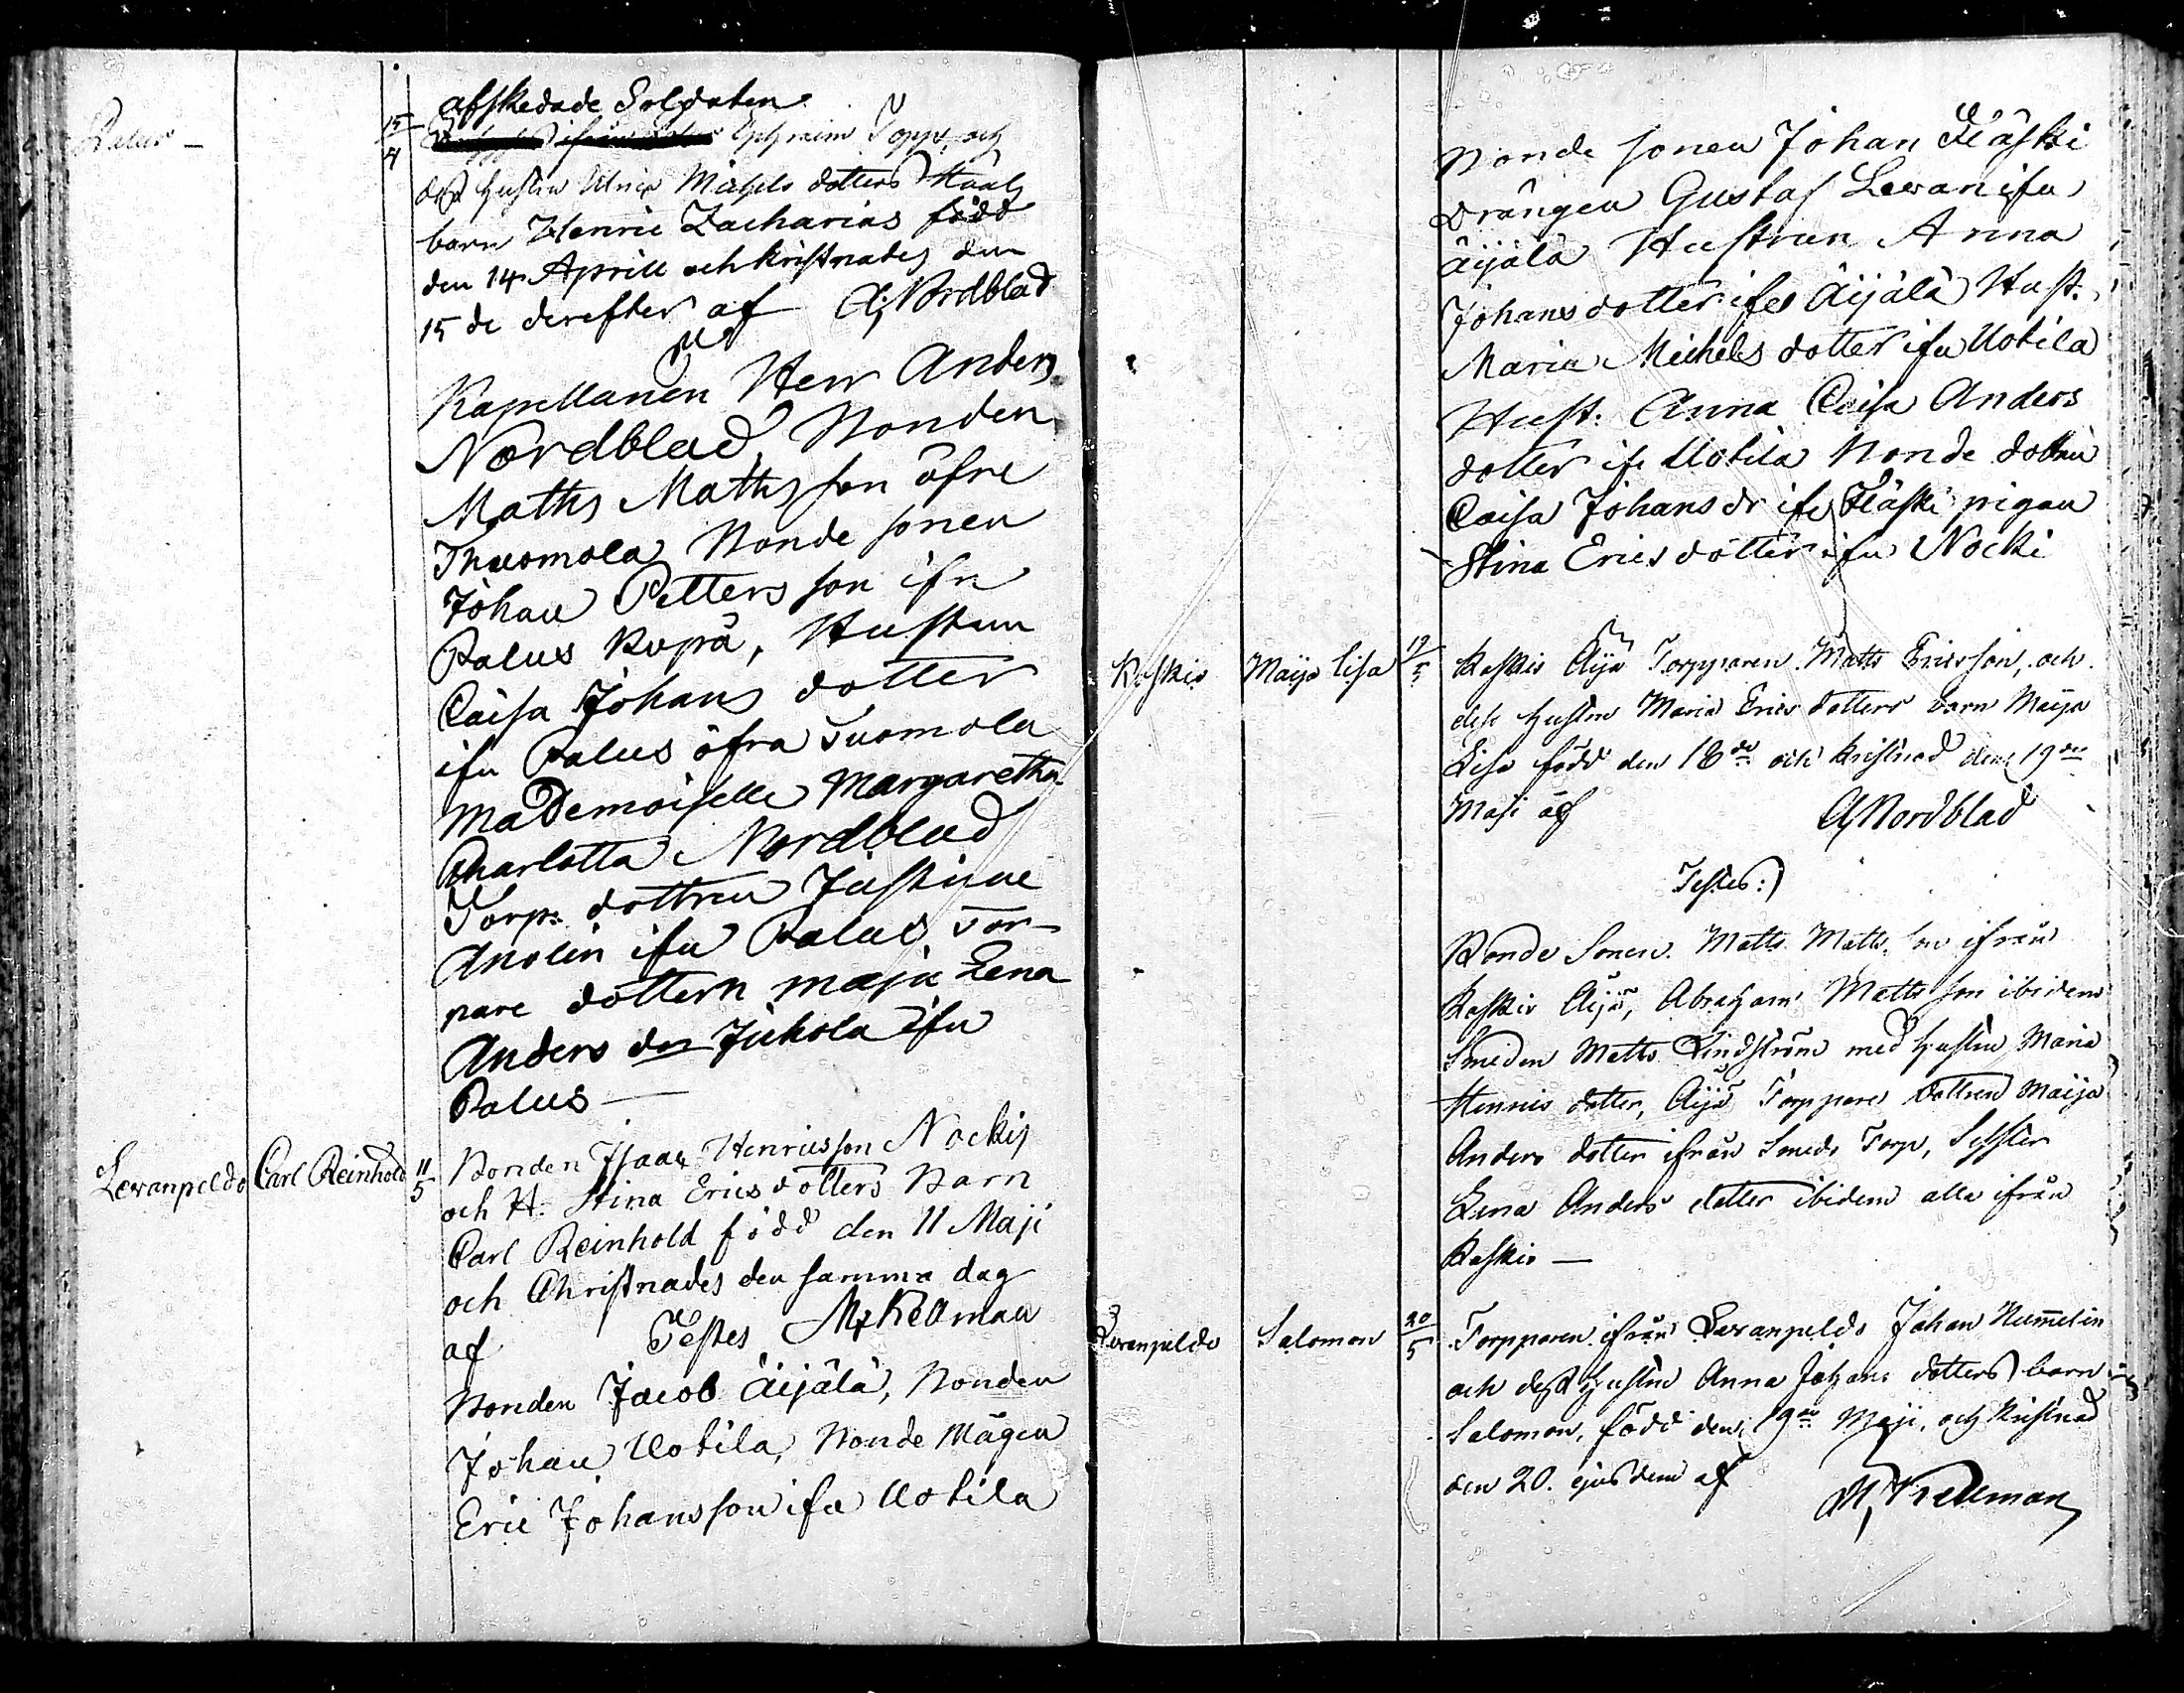 Palus —
15/4
afskedade Soldaten
Ephraim Topp, och
dess hustru Ulrica Michels dotters
barn Henric Zacharias född
den 14 Aprill och kristnades den
15 de derefter af A, Nordblad
Kapellanen Herr Anders
Nordblad, Bonden
Maths Maths son öfre
Thuomola Bonde sonen
Johan Petters son ifn
Palus Kupa, Hustrun
Caisa Johans dotter
ifn Palus öfra Tuomola
Mademoiselle Margaretha
Charlotta Nordblad
Torp. dottren Justiina
Anolin ifn Palus, Tor-
pare dottern Maja Lena
Anders dor Juhola ifn
Palus —
Levanpeldo
Carl Reinhold
11/5
Bonden Isaac Henricsson Nockis
och H. Stina Erics dotters Barn
Carl Reinhold född den 11 Maji
och Christnades den samma dag
af Testes M, Kellman
Bonden Jacob Äijälä, Bonden
Johan Uotila, Bonde Mågen
Eric Johansson ifn Uotila
Bonde sonen Johan Fläski
Drängen Gustaf Levan ifn
Äijälä Hustrun Anna
Johans dotter ifn Äijälä Hust.
Maria Michels dotter ifn Uotila
Hust. Anna Caisa Anders
dotter if Uotila Bonde dottren
Caisa Johans dr ifn Fläski pigan
Stina Erics dotter ifn Nocki
Koskis
Maija Lisa
19/5
Koskis Äijä Torpparen Matts Ericsson, och
dess hustru Maria Erics dotters barn Maija
Lisa född den 18de och kristnad den 19de
Maji af A, Nordblad
Testes:)
Bonde Sonen Matts Matts son ifrån
Koskis Äijä, Abraham Matts son ibidem
Smeden Matts Lindström med hustru Maria
Henrics dotter, Äijä Torppare dottren Maija
Anders dotter ifrån Smeds Torp, Syster
Lena Anders dotter ibidem alla ifrån
Koskis —
Levanpeldo
Salomon
20/5
Torpparen ifrån Levanpeldo Johan Numelin
och dess hustru Anna Johans dotters barn
Salomon, född den 19de Maji, och kristnad
den 20. ejusdem af
M, Kellman